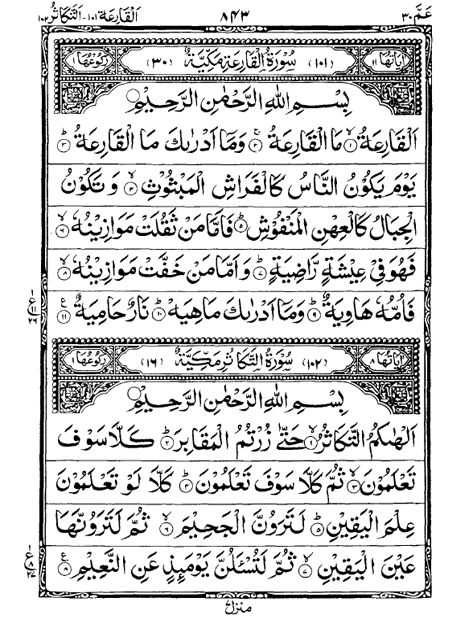 عَمَّ ٣٠ ٨٤٣ اَلْقَارِعَة ١٠١- اَلتَّكَاثُر ١٠٢
اٰيَاتُهَا ١١ (١٠١) سُوْرَةُ الْقَارِعَةِ مَكِّيَّةٌ (٣٠) رُكُوْعُهَا ١
بِسْمِ اللهِ الرَّحْمٰنِ الرَّحِيْمِ
اَلْقَارِعَةُ ۙ١ مَا الْقَارِعَةُ ۚ٢ وَمَآ اَدْرٰىكَ مَا الْقَارِعَةُ ؕ٣
يَوْمَ يَكُوْنُ النَّاسُ كَالْفَرَاشِ الْمَبْثُوْثِ ۙ٤ وَتَكُوْنُ
الْجِبَالُ كَالْعِهْنِ الْمَنْفُوْشِ ؕ٥ فَاَمَّا مَنْ ثَقُلَتْ مَوَازِيْنُهٗ ۙ٦
فَهُوَ فِيْ عِيْشَةٍ رَّاضِيَةٍ ؕ٧ وَاَمَّا مَنْ خَفَّتْ مَوَازِيْنُهٗ ۙ٨
فَاُمُّهٗ هَاوِيَةٌ ؕ٩ وَمَآ اَدْرٰىكَ مَاهِيَهْ ؕ١٠ نَارٌ حَامِيَةٌ ١١ ع
اٰيَاتُهَا ٨ (١٠٢) سُوْرَةُ التَّكَاثُرِ مَكِّيَّةٌ (١٦) رُكُوْعُهَا ١
بِسْمِ اللهِ الرَّحْمٰنِ الرَّحِيْمِ
اَلْهٰىكُمُ التَّكَاثُرُ ۙ١ حَتّٰى زُرْتُمُ الْمَقَابِرَ ؕ٢ كَلَّا سَوْفَ
تَعْلَمُوْنَ ۙ٣ ثُمَّ كَلَّا سَوْفَ تَعْلَمُوْنَ ؕ٤ كَلَّا لَوْ تَعْلَمُوْنَ
عِلْمَ الْيَقِيْنِ ؕ٥ لَتَرَوُنَّ الْجَحِيْمَ ۙ٦ ثُمَّ لَتَرَوُنَّهَا
عَيْنَ الْيَقِيْنِ ۙ٧ ثُمَّ لَتُسْـَٔلُنَّ يَوْمَئِذٍ عَنِ النَّعِيْمِ ٨ ع
منزل٧